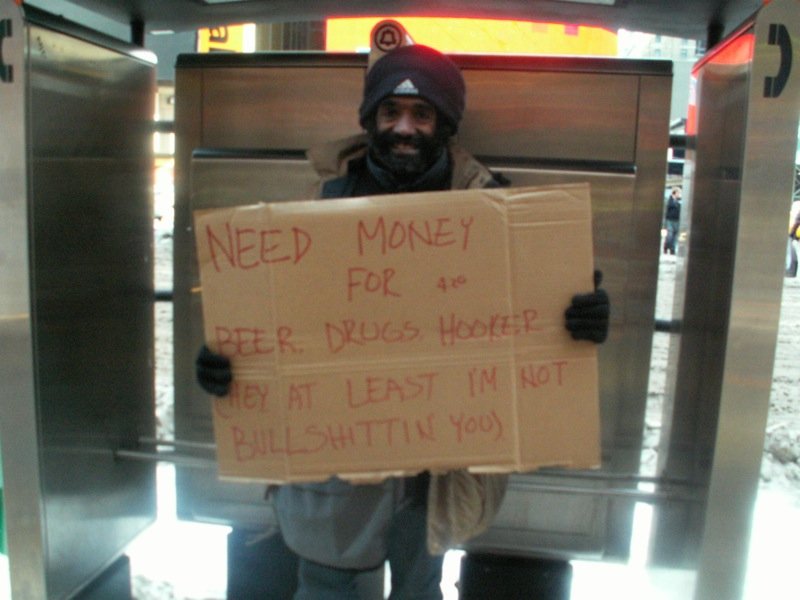 NEED MONEY
FOR
BEER. DRUGS. HOOKER
(HEY AT LEAST I'M NOT
BULLSHITTIN YOU)